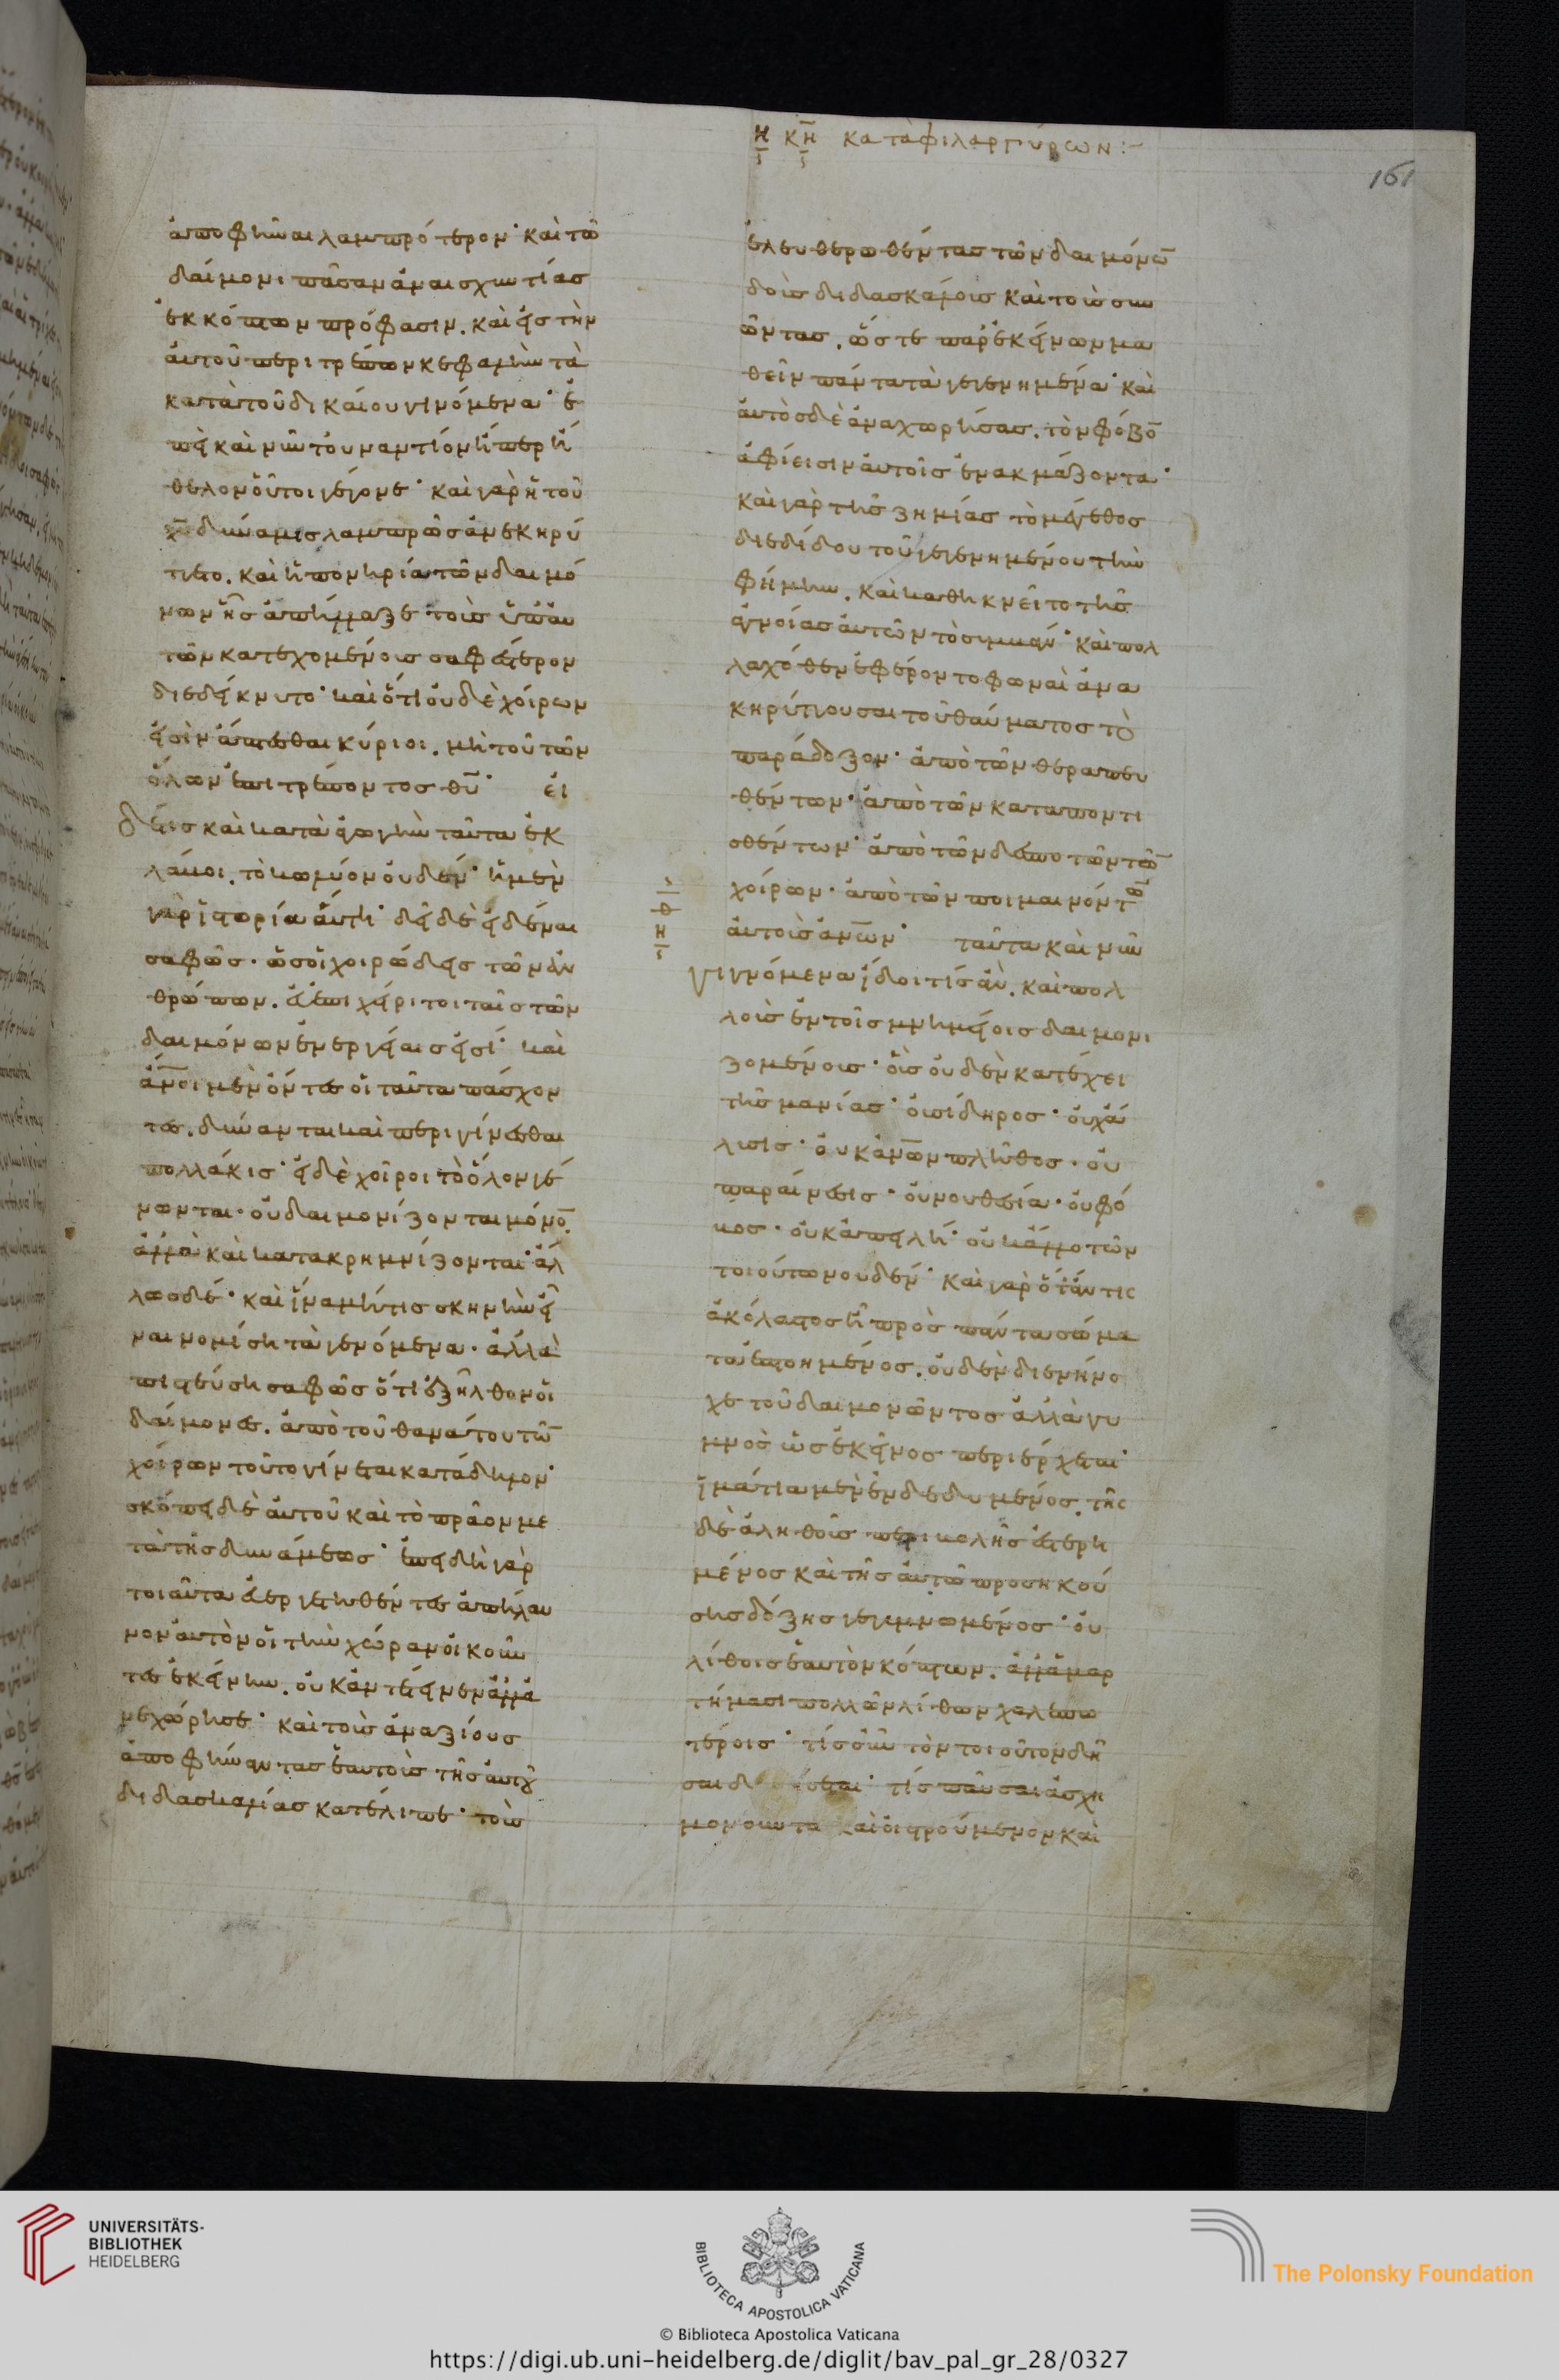 Η ΚΗ κατὰ φιλαργύρων:–
161
ἀποφῆναι λαμπρότερον· καὶ τῶ
δαίμονι πᾶσαν ἀναισχυντίας
ἐκκόπτων πρόφασιν. καὶ εἰς τὴν
ἀυτοῦ περιτρέπων κεφαλὴν τὰ
κατὰ τοῦ δικαίου γινόμενα· ἐ
πεὶ καὶ νῦν τουναντίον ἤπερ ἤ
θελον οὗτοι γέγονε· καὶ γὰρ ἡ τοῦ
χ̅υ̅ δύναμις λαμπρῶς ἀνεκηρύ
ττετο. καὶ ἡ πονηρία τῶν δαιμό
νων ἧς ἀπήλλαξε τοὺς ὑπ' ἀυ
τῶν κατεχομένους σαφέστερον
διεδείκνυτο· καὶ ὅτι οὐδὲ χοίρων
εἰσὶν ἅπτεσθαι κύριοι. μὴ τοῦ τῶν
ὅλων ἐπιτρέποντος θ̅υ̅· εἰ
δέ τις καὶ κατὰ ἀγωγὴν ταῦτα ἐκ
λάβοι. τὸ κωλύον οὐδέν· ἡ μὲν
γὰρ ἱστορία αὕτη· δεῖ δὲ εἰδέναι
σαφῶς. ὡς οἱ χοιρώδεις τῶν ἀν
θρώπων. εὐεπιχείρητοι ταῖς τῶν
δαιμόνων ἐνεργείαις εἰσί· καὶ
ἀν̅οι μὲν ὄντες οἱ ταῦτα πάσχον
τες. δύνανται καὶ περιγίνεσθαι
πολλάκις· εἰ δὲ χοῖροι τὸ ὅλον γέ
νωνται. οὐ δαιμονίζονται μόνο̅.
ἀλλὰ καὶ κατακρημνίζονται· ἄλ
λως δέ· καὶ ἵνα μή τις σκηνὴν εἶ
ναι νομίση τὰ γενόμενα. ἀλλὰ
πιστεύση σαφῶς ὅτι ἐξῆλθον οἱ
δαίμονες. ἀπὸ τοῦ θανάτου τῶ̅
χοίρων τοῦτο γίνεται κατάδηλον·
σκόπει δὲ ἀυτοῦ καὶ τὸ πρᾶον με
τὰ τῆς δυνάμεως· ἐπειδὴ γὰρ
τοιαῦτα ἐυεργετηθέντες ἀπήλαυ
νον ἀυτὸν οἱ τὴν χώραν οἰκοῦν
τες ἐκείνην. οὐκ ἀντέτεινεν ἀλλ' ἀ
νεχώρησε· καὶ τοὺς ἀναξίους
ἀποφήναντας ἑαυτοὺς τῆς ἀυτοῦ
διδασκαλίας κατέλιπε· τοὺς
ἐλευθερωθέντας τῶν δαιμόνω̅
δοὺς διδασκάλους καὶ τοὺς συ
ῶντας. ὥστε παρ' ἐκείνων μα
θεῖν πάντα τὰ γεγενημένα· καὶ
ἀυτὸς δὲ ἀναχωρήσας. τὸν φόβο̅
ἀφίεισιν ἀυτοῖς ἐνακμάζοντα·
καὶ γὰρ τῆς ζημίας τὸ μέγεθος
διεδίδου τοῦ γεγενημένου τὴν
φήμην. καὶ καθικνεῖτο τῆς
διανοίας ἀυτῶν τὸ συμβάν· καὶ πολ
λαχόθεν ἐφέροντο φωναὶ ἀνα
κηρύττουσαι τοῦ θαύματος τὸ
παράδοξον· ἀπὸ τῶν θεραπευ
θέντων· ἀπὸ τῶν καταποντι
σθέντων· ἀπὸ τῶν δεσποτῶν τῶ̅
χοίρων· ἀπὸ τῶν ποιμαινόντω̅
ἀυτοὺς ἀν̅ων· ταῦτα καὶ νῦν
γιγνόμενα ἴδοι τίς ἂν. καὶ πολ
λοὺς ἐν τοῖς μνημείοις δαιμονι
ζομένους· οὓς οὐδὲν κατέχει
τῆς μανίας· οὐ σίδηρος· οὐχ ἅ
λυσις· οὐκ ἀν̅ων πλῆθος. οὐ
παραίνεσις· οὐ νουθεσία· οὐ φό
βος· οὐκ ἀπειλὴ· οὐκ ἄλλο τῶν
τοιούτων ουδέν· καὶ γὰρ ὅταν τις
ἀκόλαστος ἦ πρὸς πάντα σώμα
τα ἐπτοημένος. οὐδὲν διενήνο
χε τοῦ δαιμονῶντος ἀλλὰ γυ
μνὸς ὡς ἐκεῖνος περιέρχεται·
ἱμάτια μὲν ἐνδεδυμένος. τῆς
δὲ ἀληθοῦς περιβολῆς ἐστερη
μένος καὶ τῆς ἀυτῶ προσηκού
σης δόξης γεγυμνωμένος· οὐ
λίθοις ἑαυτὸν κόπτων. ἀλλ' ἁμαρ
τήμασι πολλῶν λίθων χαλεπω
τέροις· τίς οὖν τὸν τοιοῦτον δῆ
σαι δυνήσεται· τίς παῦσαι ἀσχη
μονοῦντα καὶ οἰστρούμενον καὶ
UNIVERSITÄTS-
BIBLIOTHEK
HEIDELBERG
BIBLIOTECA APOSTOLICA VATICANA
The Polonsky Foundation
© Biblioteca Apostolica Vaticana
https://digi.ub.uni-heidelberg.de/diglit/bav_pal_gr_28/0327